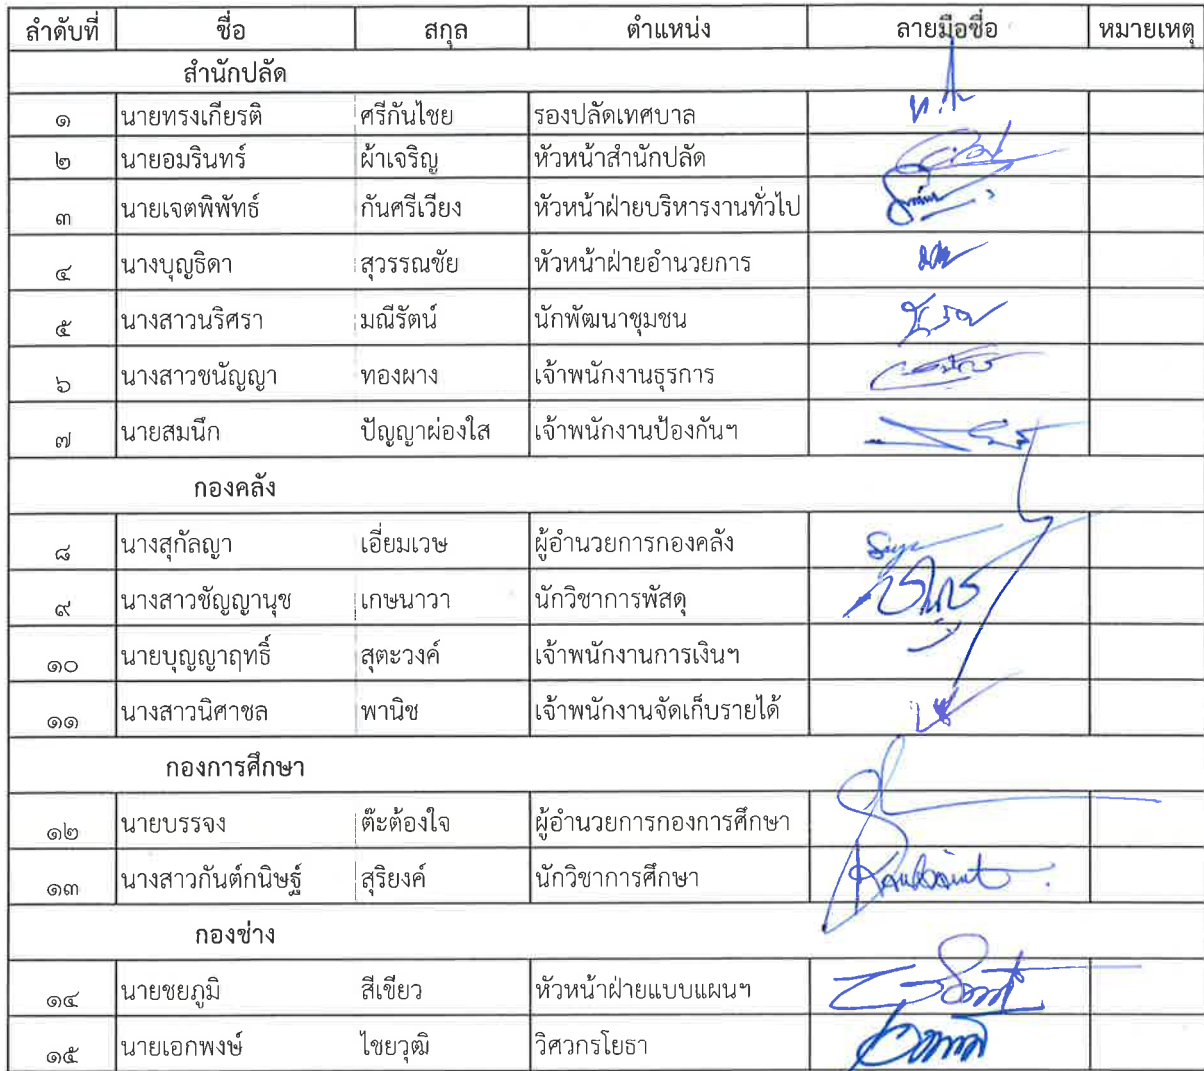 ลำดับที่ ชื่อ สกุล ตำแหน่ง ลายมือชื่อ หมายเหตุ
สำนักปลัด
๑ นายทรงเกียรติ ศรีกันไชย รองปลัดเทศบาล
๒ นายอมรินทร์ ผ้าเจริญ หัวหน้าสำนักปลัด
๓ นายเจตพิพัทธ์ กันศรีเวียง หัวหน้าฝ่ายบริหารงานทั่วไป
๔ นางบุญธิดา สุวรรณชัย หัวหน้าฝ่ายอำนวยการ
๕ นางสาวนริศรา มณีรัตน์ นักพัฒนาชุมชน
๖ นางสาวชนัญญา ทองผาง เจ้าพนักงานธุรการ
๗ นายสมนึก ปัญญาผ่องใส เจ้าพนักงานป้องกันฯ
กองคลัง
๘ นางสุกัลญา เอี่ยมเวษ ผู้อำนวยการกองคลัง
๙ นางสาวชัญญานุช เกษนาวา นักวิชาการพัสดุ
๑๐ นายบุญญาฤทธิ์ สุตะวงค์ เจ้าพนักงานการเงินฯ
๑๑ นางสาวนิศาชล พานิช เจ้าพนักงานจัดเก็บรายได้
กองการศึกษา
๑๒ นายบรรจง ต๊ะต้องใจ ผู้อำนวยการกองการศึกษา
๑๓ นางสาวกันต์กนิษฐ์ สุริยงค์ นักวิชาการศึกษา
กองช่าง
๑๔ นายชยภูมิ สีเขียว หัวหน้าฝ่ายแบบแผนฯ
๑๕ นายเอกพงษ์ ไชยวุฒิ วิศวกรโยธา